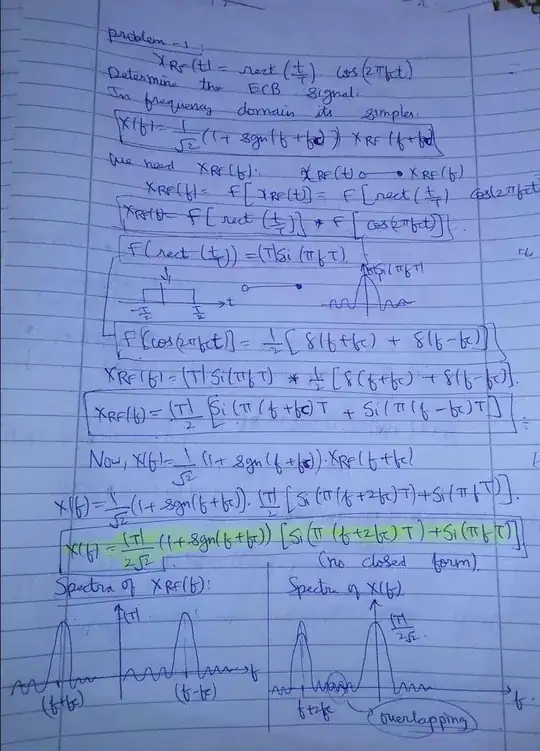 Problem-1:
XRF(t) = rect(t/T). cos(2πfct)
Determine the ECB signal.
In frequency domain its simpler
X(f) = 1/√2 (1 + sgn(f + fc)) XRF(f+fc)
We need XRF(f). xRF(t) XRF(f)
XRF(f) = F[xRF(t)] = F[rect(t/T) cos(2πfct
XRF(f) = F[rect(t/T)] * F[cos(2πfct)]
F(rect(t/T)) = |T| Si(πfT)
Si(πfT)
-T/2 T/2 t
F[cos(2πfct)] = 1/2 [δ(f+fc) + δ(f-fc)]
XRF(f) = |T| Si(πfT) * 1/2 [δ(f+fc) + δ(f-fc)].
XRF(f) = |T|/2 [Si(π(f+fc)T + Si(π(f-fc)T]
Now, X(f) = 1/√2 (1 + sgn(f+fc)).XRF(f+fc)
X(f) = 1/√2 (1 + sgn(f+fc)). |T|/2 [Si(π(f+2fc)T) + Si(πfT)].
X(f) = |T|/2√2 (1 + sgn(f+fc)) [Si(π(f+2fc)T) + Si(πfT)]
(no closed form).
Spectra of XRF(f):
Spectra of X(f)
|T|
(f+fc) (f-fc) f
|T|/2√2.
f+2fc f
overlapping